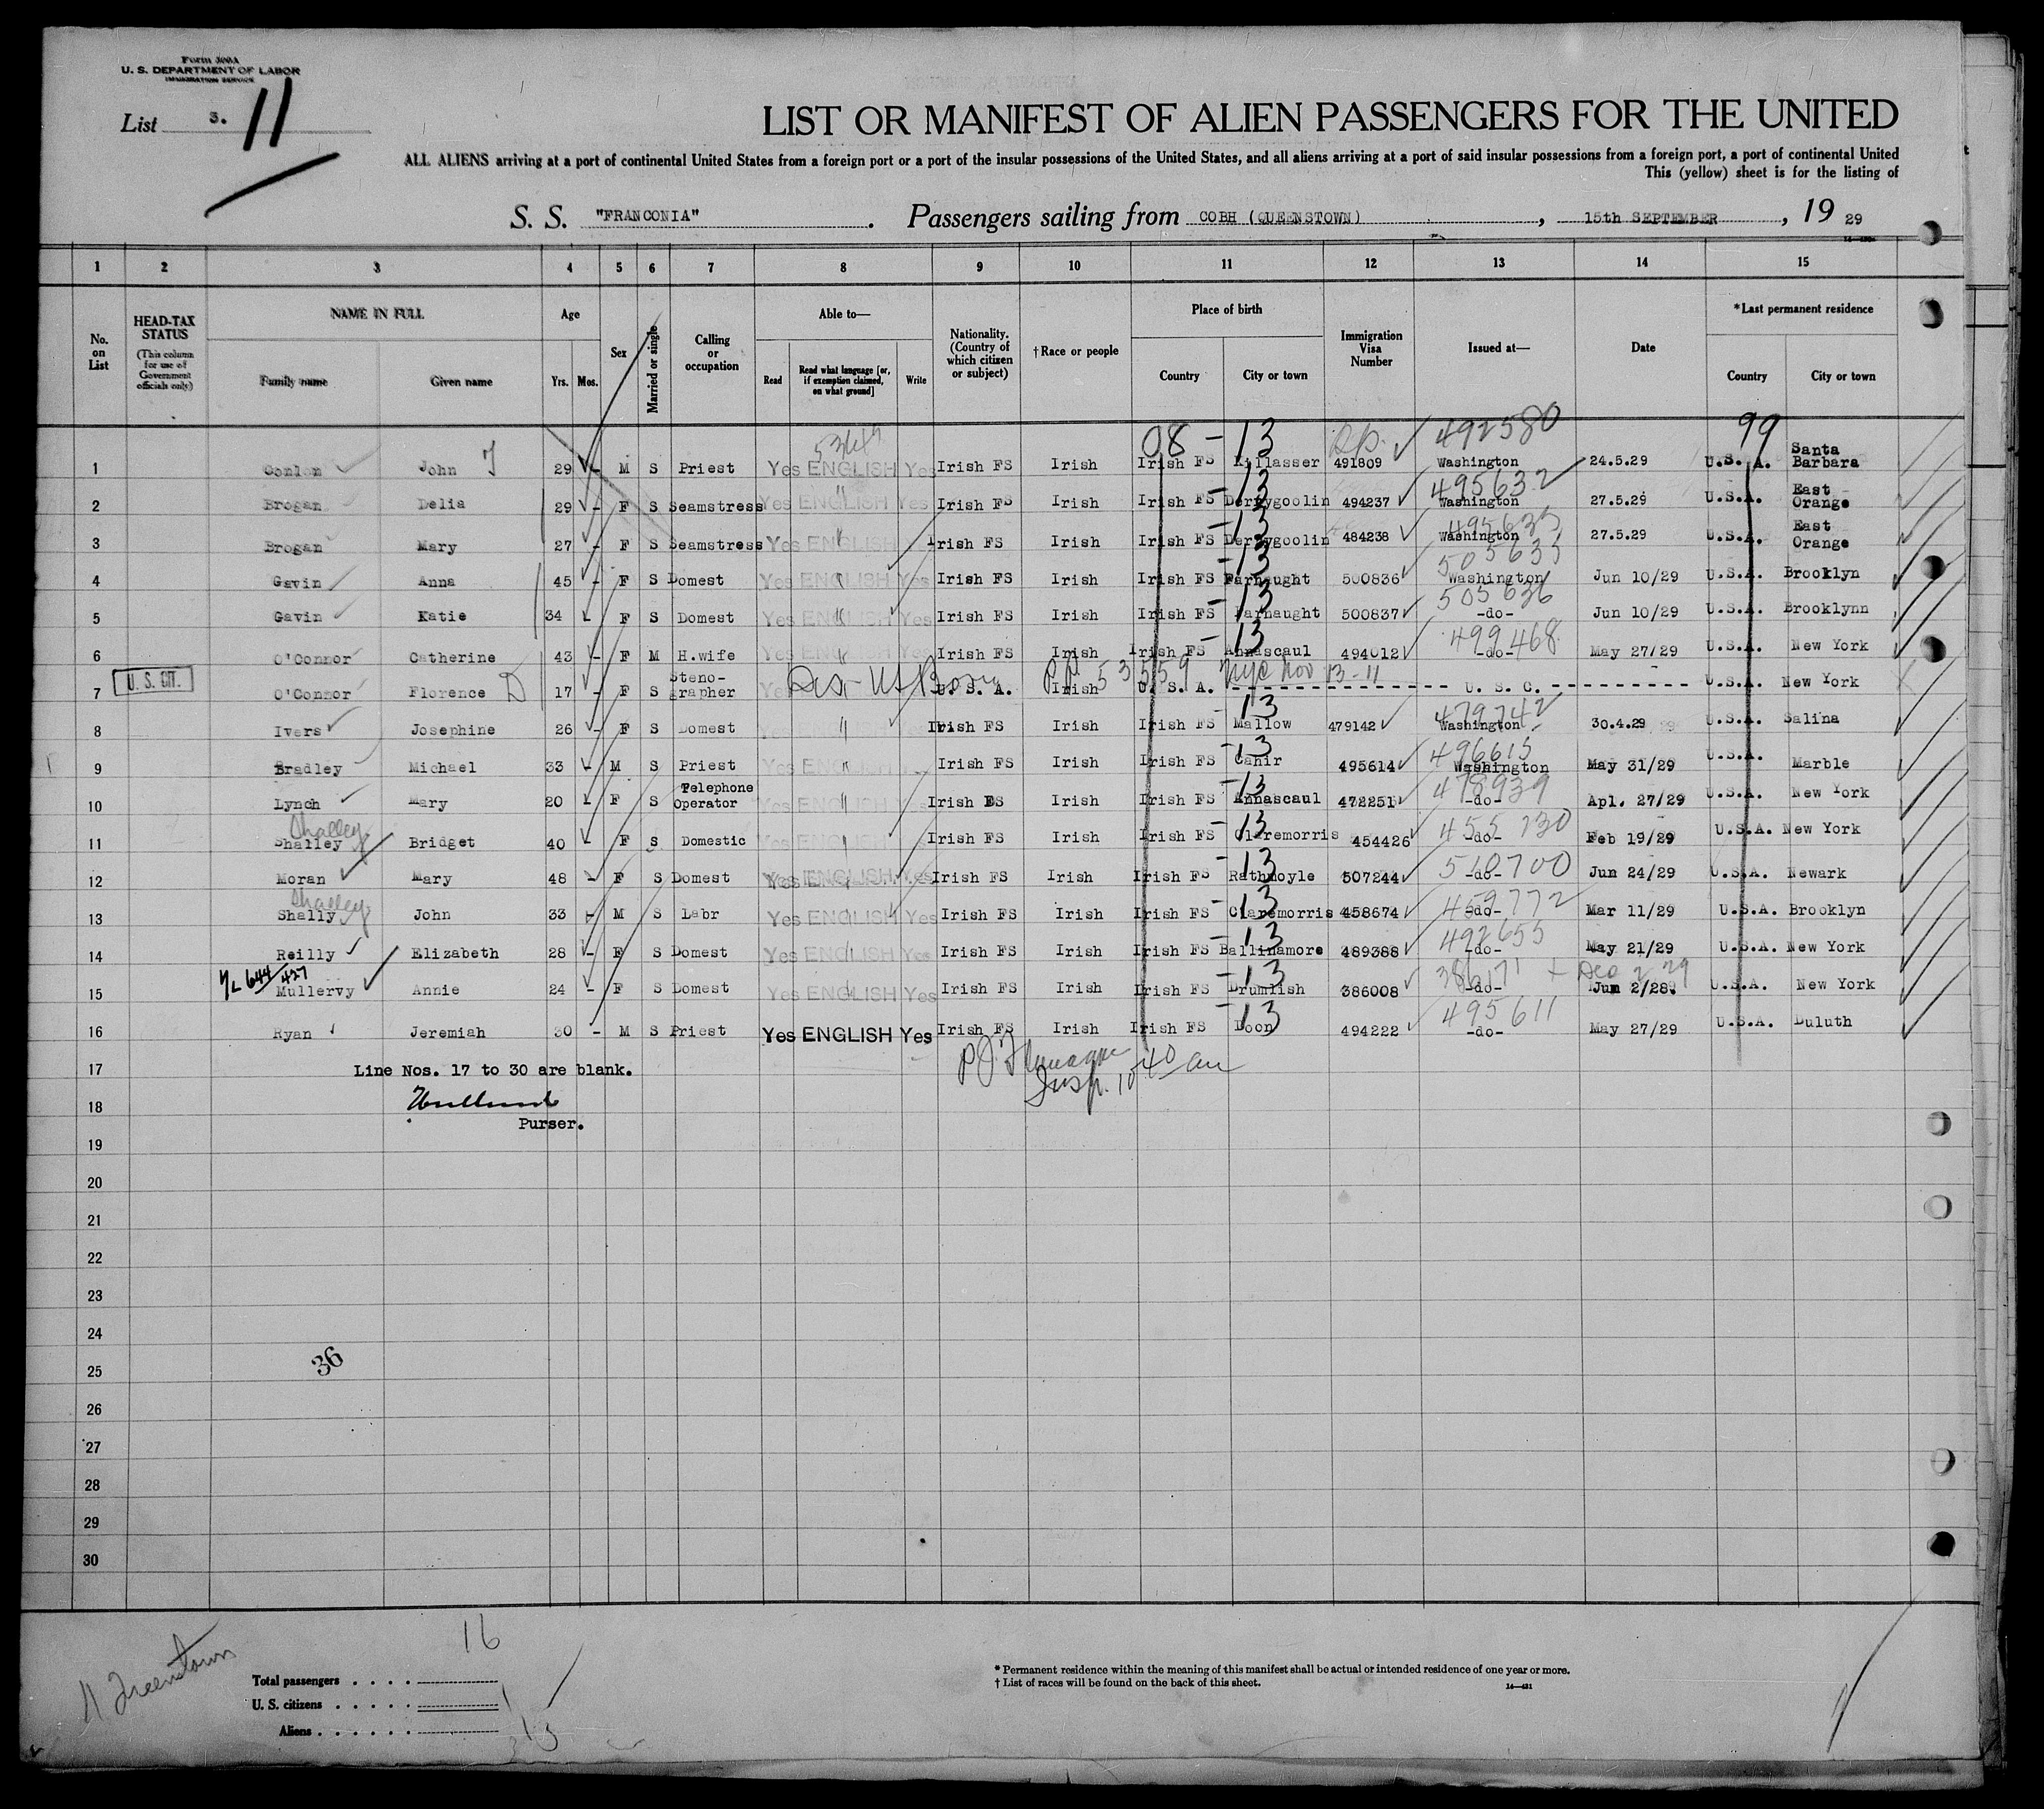 Form 500A
U. S. DEPARTMENT OF LABOR
IMMIGRATION SERVICE
List 3. 11
LIST OR MANIFEST OF ALIEN PASSENGERS FOR THE UNITED
ALL ALIENS arriving at a port of continental United States from a foreign port or a port of the insular possessions of the United States, and all aliens arriving at a port of said insular possessions from a foreign port, a port of continental United
This (yellow) sheet is for the listing of
S. S. "FRANCONIA". Passengers sailing from COBH (QUEENSTOWN), 15th SEPTEMBER, 19 29
1 2 3 4 5 6 7 8 9 10 11 12 13 14 15
No. on List
HEAD-TAX STATUS
(This column for use of Government officials only)
NAME IN FULL
Family name Given name
Age
Yrs. Mos.
Sex
Married or single
Calling or occupation
Able to—
Read Read what language [or, if exemption claimed, on what ground] Write
Nationality. (Country of which citizen or subject)
†Race or people
Place of birth
Country City or town
Immigration Visa Number
Issued at—
Date
*Last permanent residence
Country City or town
08 - 13 492580 99
1 Conlon John J 29 - M S Priest Yes ENGLISH Yes Irish FS Irish Irish FS Killasser 491809 Washington 24.5.29 U.S.A. Santa Barbara
13 495632
2 Brogan Delia 29 - F S Seamstress Yes ENGLISH Yes Irish FS Irish Irish FS Derrygoolin 494237 Washington 27.5.29 U.S.A. East Orange
13 495633
3 Brogan Mary 27 - F S Seamstress Yes ENGLISH Yes Irish FS Irish Irish FS Derrygoolin 484238 Washington 27.5.29 U.S.A. East Orange
13 505635
4 Gavin Anna 45 - F S Domest Yes ENGLISH Yes Irish FS Irish Irish FS Farnaught 500836 Washington Jun 10/29 U.S.A. Brooklyn
13 505636
5 Gavin Katie 34 F S Domest Yes ENGLISH Yes Irish FS Irish Irish FS Farnaught 500837 -do- Jun 10/29 U.S.A. Brooklynn
13 499468
6 O'Connor Catherine 43 - F M H.wife Yes ENGLISH Yes Irish FS Irish Irish FS Annascaul 494012 -do- May 27/29 U.S.A. New York
U. S. CIT.
7 O'Connor Florence D 17 - F S Steno-grapher U. S. A. Irish U. S. A. U. S. C. U.S.A. New York
PP 53559 NYC Nov 13-11
13 479742
8 Ivers Josephine 26 - F S Domest Irish FS Irish Irish FS Mallow 479142 Washington 30.4.29 U.S.A. Salina
13 496615
9 Bradley Michael 33 - M S Priest Yes ENGLISH Irish FS Irish Irish FS Cahir 495614 Washington May 31/29 U.S.A. Marble
13 478939
10 Lynch Mary 20 F S Telephone Operator Yes ENGLISH Yes Irish FS Irish Irish FS Annascaul 472251 -do- Apl. 27/29 U.S.A. New York
Shalley 13 455730
11 Shalley Bridget 40 F S Domestic Yes ENGLISH Irish FS Irish Irish FS Claremorris 454426 -do- Feb 19/29 U.S.A. New York
13 510700
12 Moran Mary 48 - F S Domest Yes ENGLISH Yes Irish FS Irish Irish FS Rathmoyle 507244 -do- Jun 24/29 U.S.A. Newark
Shalley 13 459772
13 Shally John 33 - M S Labr Yes ENGLISH Yes Irish FS Irish Irish FS Claremorris 458674 -do- Mar 11/29 U.S.A. Brooklyn
13 492655
14 Reilly Elizabeth 28 - F S Domest Yes ENGLISH Yes Irish FS Irish Irish FS Ballinamore 489388 -do- May 21/29 U.S.A. New York
644/427 13 386171 Dec 2 29
15 Mullervy Annie 24 - F S Domest Yes ENGLISH Yes Irish FS Irish Irish FS Drumlish 386008 -do- Jun 2/28. U.S.A. New York
13 495611
16 Ryan Jeremiah 30 - M S Priest Yes ENGLISH Yes Irish FS Irish Irish FS Doon 494222 -do- May 27/29 U.S.A. Duluth
17 Line Nos. 17 to 30 are blank.
Insp. 10 40 am
18
Purser.
19
20
21
22
23
24
25
36
26
27
28
29
30
16
Total passengers
U. S. citizens 1
Aliens 15
* Permanent residence within the meaning of this manifest shall be actual or intended residence of one year or more.
† List of races will be found on the back of this sheet.
14—431